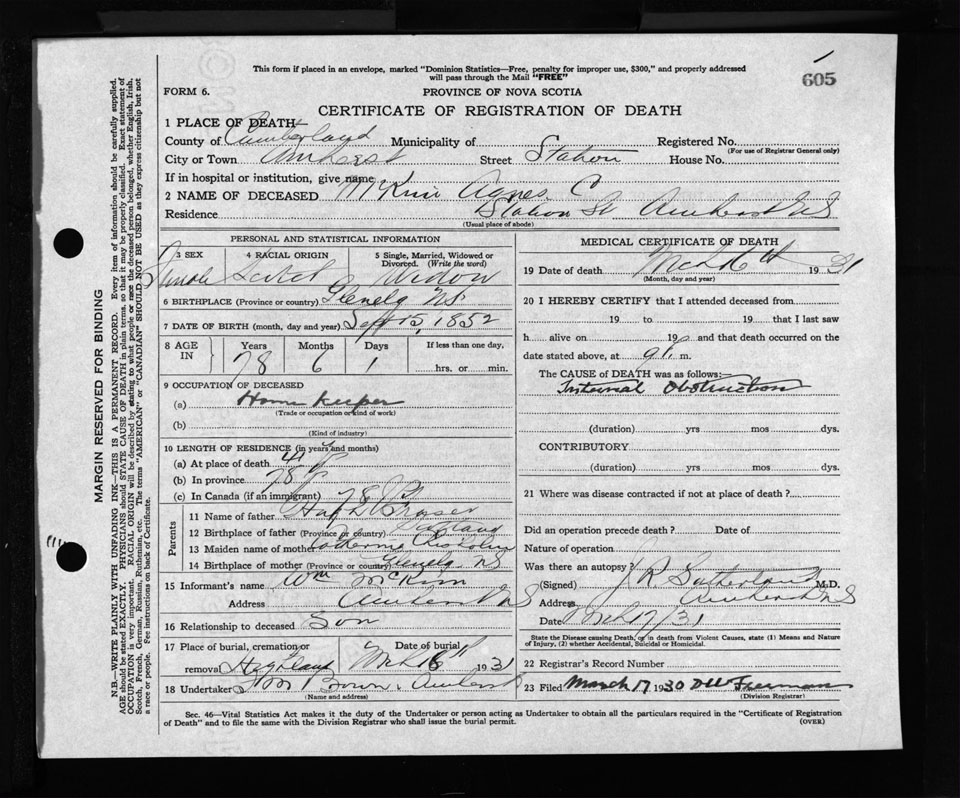 605
This form if placed in an envelope, marked "Dominion Statistics—Free, penalty for improper use, $300," and properly addressed
will pass through the Mail "FREE"
FORM 6.
PROVINCE OF NOVA SCOTIA
CERTIFICATE OF REGISTRATION OF DEATH
1 PLACE OF DEATH
County of Cumberland Municipality of Registered No.
(For use of Registrar General only)
City or Town Amherst Street Station House No.
If in hospital or institution, give name
2 NAME OF DECEASED McKim Agnes C
Residence Station St Amherst NS
(Usual place of abode)
PERSONAL AND STATISTICAL INFORMATION
3 SEX 4 RACIAL ORIGIN 5 Single, Married, Widowed or Divorced. (Write the word)
Female Scotch Widow
6 BIRTHPLACE (Province or country) Glenelg NS
7 DATE OF BIRTH (month, day and year) Sept 15, 1852
8 AGE IN Years Months Days If less than one day,
78 6 1 hrs. or min.
9 OCCUPATION OF DECEASED
(a) Home Keeper
(Trade or occupation or kind of work)
(b)
(Kind of industry)
10 LENGTH OF RESIDENCE (in years and months)
(a) At place of death 41
(b) In province 78
(c) In Canada (if an immigrant) 78
Parents
11 Name of father Hugh D Fraser
12 Birthplace of father (Province or country) Scotland
13 Maiden name of mother Catherine Chisholm
14 Birthplace of mother (Province or country) Glenelg NS
15 Informant's name Wm McKim
Address Amherst NS
16 Relationship to deceased Son
17 Place of burial, cremation or removal Highland Date of burial 1931
18 Undertaker Brown, Amherst
(Name and address)
MEDICAL CERTIFICATE OF DEATH
19 Date of death Mch 16th 1931
(Month, day and year)
20 I HEREBY CERTIFY that I attended deceased from
19 to 19 that I last saw
h alive on 19 and that death occurred on the
date stated above, at 9 P. m.
The CAUSE of DEATH was as follows:
Obstruction
(duration) yrs mos dys.
CONTRIBUTORY
(duration) yrs mos dys.
21 Where was disease contracted if not at place of death?
Did an operation precede death? Date of
Nature of operation
Was there an autopsy
(Signed) J R Sutherland M.D.
Address Amherst NS
Date Mch 17/31
State the Disease causing Death, or in death from Violent Causes, state (1) Means and Nature
of Injury, (2) whether Accidental, Suicidal or Homicidal.
22 Registrar's Record Number
23 Filed March 17 1930 Freeman
(Division Registrar)
Sec. 46—Vital Statistics Act makes it the duty of the Undertaker or person acting as Undertaker to obtain all the particulars required in the "Certificate of Registration
of Death" and to file the same with the Division Registrar who shall issue the burial permit.
(OVER)
MARGIN RESERVED FOR BINDING
N.B.—WRITE PLAINLY WITH UNFADING INK—THIS IS A PERMANENT RECORD. Every item of information should be carefully supplied.
AGE should be stated EXACTLY. PHYSICIANS should STATE CAUSE OF DEATH in plain terms, so that it may be properly classified. Exact statement of
OCCUPATION is very important. RACIAL ORIGIN will be described by stating to what people or race the deceased person belonged, whether English, Irish,
Scotch, French, German, Russian, Ruthenian, etc. The terms "AMERICAN" or "CANADIAN" SHOULD NOT BE USED as they express citizenship but not
a race or people. Fee instructions on back of Certificate.